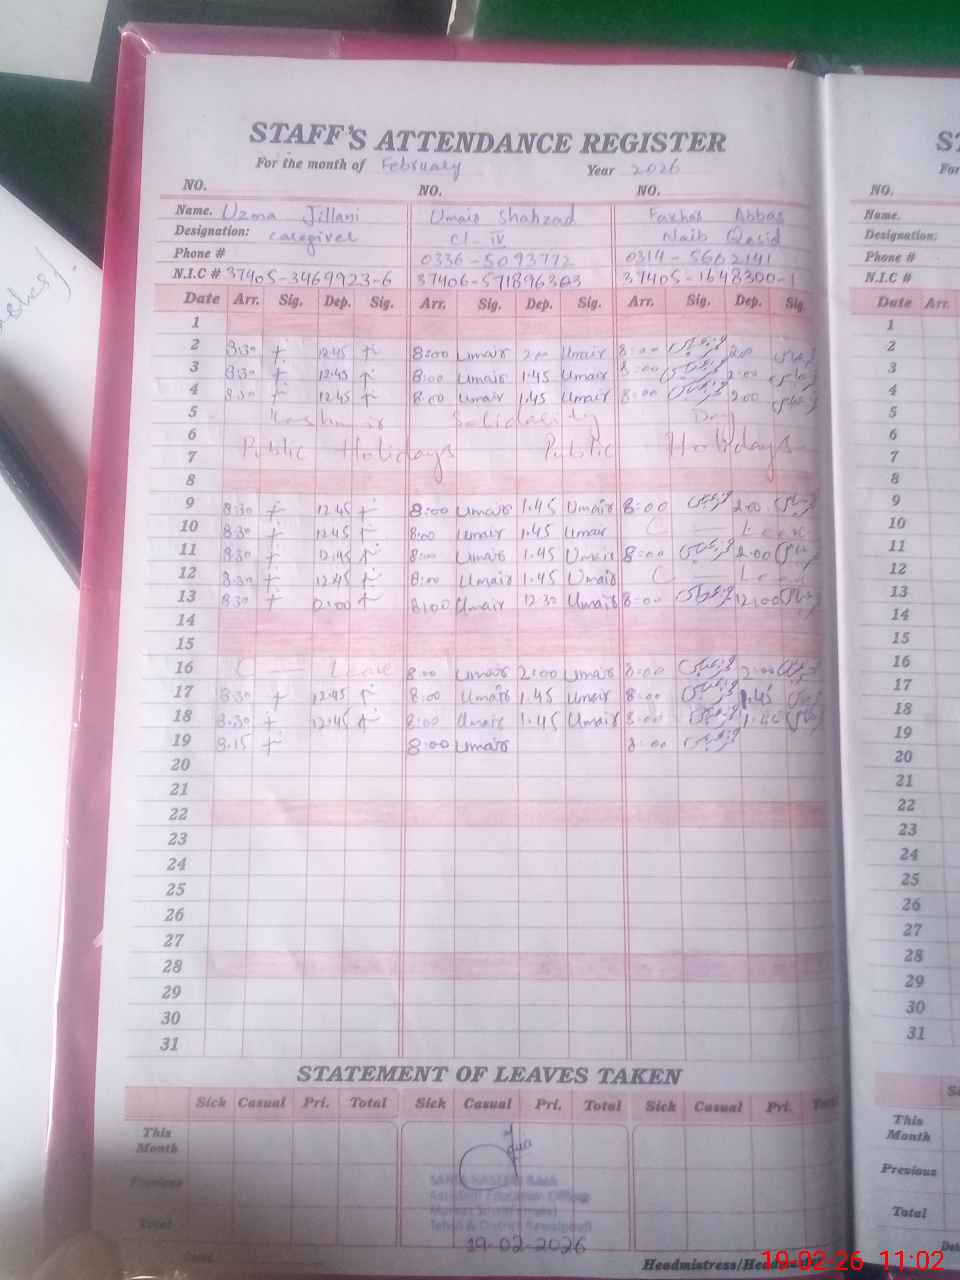 STAFF'S ATTENDANCE REGISTER
For the month of February Year 2026
NO. NO. NO.
Name. Uzma Jillani Umair Shahzad Farhat Abbas
Designation: caregiver Cl-IV Naib Qasid
Phone # 0336-5093772 0314-5602141
N.I.C # 37405-3469923-6 37406-571896303 37405-1648300-1
Date Arr. Sig. Dep. Sig. Arr. Sig. Dep. Sig. Arr. Sig. Dep. Sig.
1
2 8:30 12:45 8:00 Umair 2:00 Umair 8:00 2:00
3 8:30 12:45 8:00 Umair 1.45 Umair 8:00 2:00
4 8:30 12:45 8:00 Umair 1.45 Umair 8:00 2:00
5 Kashmir Solidarity Day
6 Public Holidays Public Holidays
7
8
9 8:30 12:45 8:00 Umair 1.45 Umair 8:00 2:00
10 8:30 12:45 8:00 Umair 1.45 Umair C — Leave
11 8:30 12:45 8:00 Umair 1.45 Umair 8:00 2:00
12 8:30 12:45 8:00 Umair 1.45 Umair C — Leave
13 8:30 12:00 8:00 Umair 12:30 Umair 8:00 12:00
14
15
16 C — Leave 8:00 Umair 2:00 Umair 8:00 2:00
17 8:30 12:45 8:00 Umair 1.45 Umair 8:00 1.45
18 8:30 12:45 8:00 Umair 1.45 Umair 8:00 1.45
19 8:15 8:00 Umair 8:00
20
21
22
23
24
25
26
27
28
29
30
31
STATEMENT OF LEAVES TAKEN
Sick Casual Pri. Total Sick Casual Pri. Total Sick Casual Pri. Total
This Month
Previous
Total
Assistant Education Officer
Tehsil & District Rawalpindi
19-02-2026
Headmistress/Headmaster
NO.
Name.
Designation:
Phone #
N.I.C #
Date Arr.
1
2
3
4
5
6
7
8
9
10
11
12
13
14
15
16
17
18
19
20
21
22
23
24
25
26
27
28
29
30
31
This Month
Previous
Total
19-02-26 11:02